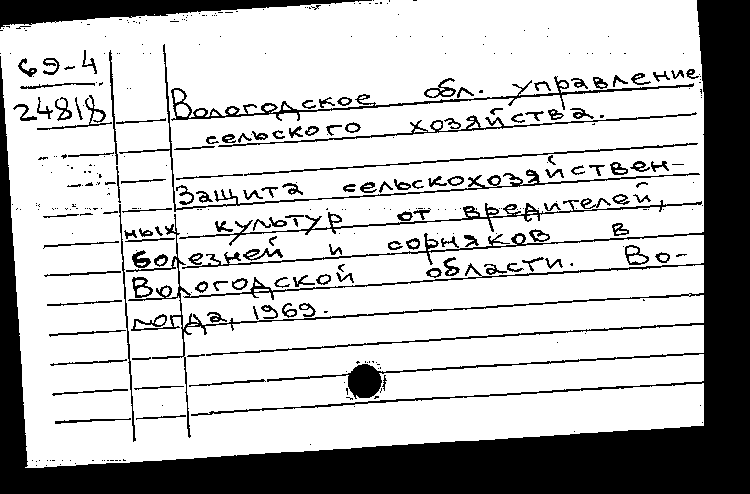 69-4
24818
Вологодское обл. управление
сельского хозяйства.
Защита сельскохозяйствен-
ных культур от вредителей,
болезней и сорняков в
Вологодской области. Во-
логда, 1969.